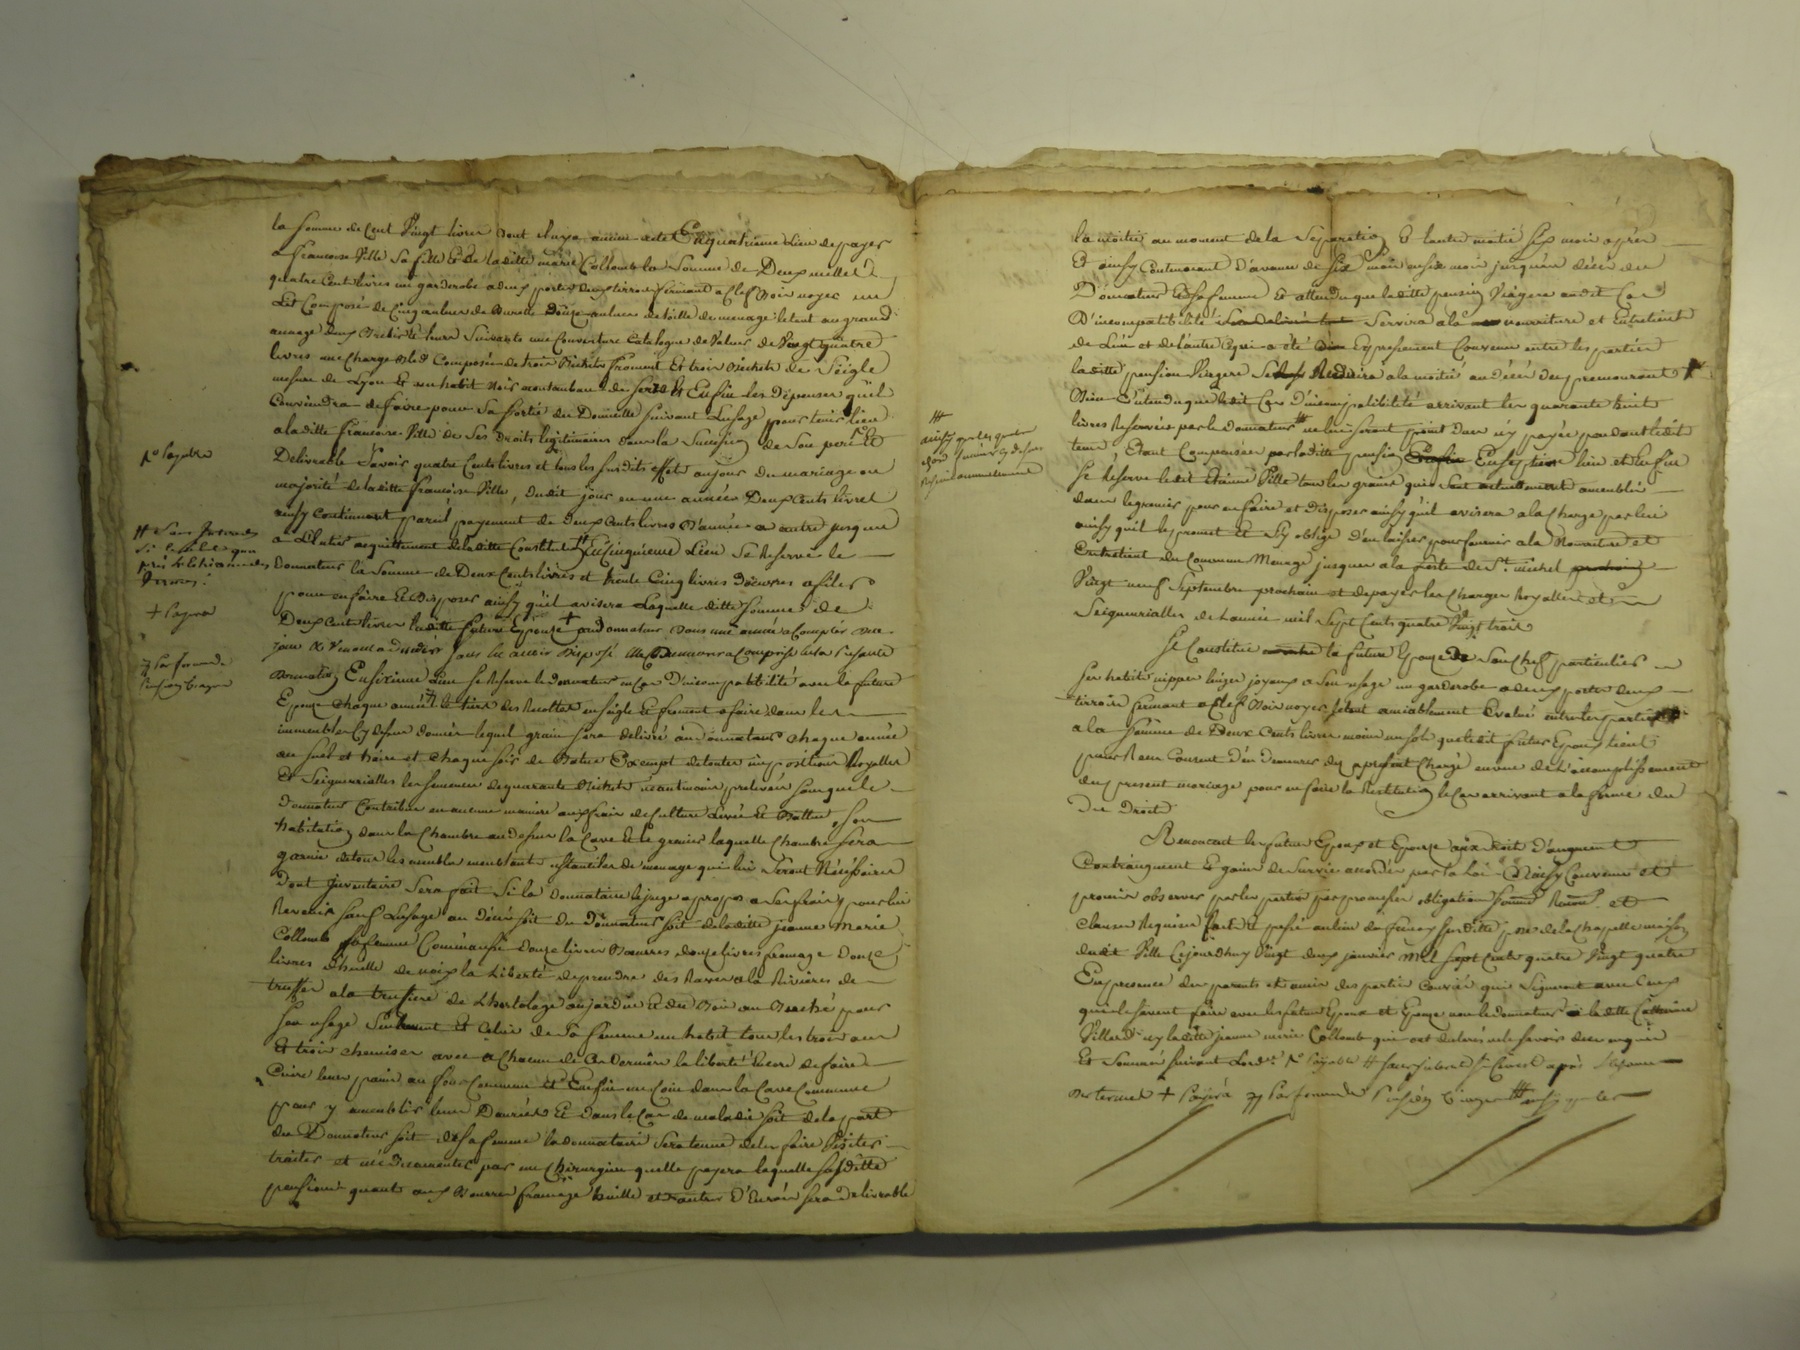 la somme de Cent Vingt livres dont il n'y a aucun acte En quatrieme Lieu de payer
a francoise Ville Sa fille Et de laditte marie Collomb la Somme de Deux mille
quatre Cent livres un garderobe a deux portes deux tirroirs fermant a Clef Bois noyer un
Lit Composé de Cinq aulnes de Douze aulnes de toille de menage le tout au grand
aunage deux une Couverture Catalogne de Valeur de Vingt quatre
livres une Charge bled Composée de trois Bichets froment Et trois Bichets de Seigle
mesure de Lyon Et un habit Noir de Et Enfin les Dépenses qu'il
Conviendra de faire pour Sa Sortie du Domicille Suivant L'usage pour tenir lieu
a laditte francoise Ville de Ses Droits legitimaires dans la Succession de Son pere Et
Delivrable Savoir quatre Cents livres et tous les Susdits effet au jour du mariage ou
majorité de laditte francoise Ville, dudit jour en une année Deux Cents livres
ainsy Continuant pareil payement de deux Cents livres D'année a autre jusques
a L'Entier acquittement de laditte Constitution # En Cinquieme Lieu Se Reserve le
Donnateur la Somme de Deux Cents livres et trente Cinq livres d'oeuvres a filer
pour en faire Et Disposer ainsy qu'il avisera Laquelle ditte Somme de
Deux Cents livres laditte future Epouze + au donnateur Dans une année a Compter de ce
jour Et Venant a deceder Sans en avoir Disposé Elle Demeurera Comprise en la presente
Donnation En Sixieme Lieu Se Reserve le donnateur en Cas D'incompatibilité avec la future
Epouze Chaque année le tiers des Recoltes en Seigle Et froment a faire dans les
immeubles Cy dessus donnés lequel grain Sera delivré au Donnateur Chaque année
au Sual et Noire et Chaque fois de Battue Exempt de toutes impositions Royalles
Et Seigneurialles les Semences de quarante Bichets néantmoins prelevés Sans que le
donnateur Contribue en aucune maniere aux frais de Culture Levée Et Battue, Son
habitation dans la Chambre au dessus la Cave Et le grenier laquelle Chambre Sera
garnie de tous les meubles meublants ustancilles de menage qui lui Seront Nécéssaires
Dont Inventaire Sera fait Si la Donnataire le juge a propos a Ses frais pour lui
Revenir Sauf L'usage au décès Soit du Donnateur Soit de laditte jeanne Marie
Collomb Sa femme Comme aussi Douze livres Beurres douze livres fromage Douze
livres d'huille de noix la Liberté de prendre des Raves a la Raviere des
truffes a la truffiere de L'hortolage au jardin Et du Bois au Buché pour
Son usage Seulement Et Celui de Sa femme un habit tous les trois ans
Et trois Chemises avec a Chacun de Ces Derniers la liberté Encore de faire
Cuire leur pain au four Commun Et Enfin un Coin dans la Cave Commune
pour y amenblir leurs Danrées Et Dans le Cas de maladie Soit de la part
du Donnateur Soit de Sa femme la donnataire Sera tenue de les faire Visiter
traiter et médicamenter par un Chirurgien quelle payera laquelle Susditte
pension quant aux Beurres fromage huille et autres D'Envoir Sera Delivrable
po payable
# Sans Interets
+ payera
par forme de
pension Viagere
la moitié au moment de la Séparation Et lautre moitié Six mois aprés
Et ainsy Continuant D'avance de Six mois en Six mois jusqu'au décès du
Donnateur Et Sa femme Et attendu que laditte pension Viagere audit Cas
D'incompatibilité Servira a la nourriture et Entretient
de L'un et de L'autre Ce qui a été Expressement Convenu entre les parties
laditte pension Viagere Se Reduira a la moitié au décès du premourant
Bien Entendu que ledit Cas D'incompatibilité arrivant les quarante huit
livres Reservées par le Donnateur # ne lui Seront point dues n'y payée pendant ledit
tems, Etant Compensées par laditte pension En Septieme lieu et Enfin
Se Reserve ledit Etienne Ville tous les grains qui Sont actuellement amenblés
dans le grenier pour en faire et disposer ainsy qu'il avisera a la Charge par lui
ainsy qu'il le promet Et S'y oblige D'en laisser pour fournir a la Nourriture et
Entretient du Commun Menage jusques a la feste de St. michel
Vingt neuf Septembre prochain et de payer les Charges Royalles et
Seigneurialles de L'année mil Sept Cents quatre Vingt trois
Se Constitue la future Epouze De Son Chef particulier
Ses habits nippes linges joyaux a Son usage un garderobe a deux portes deux
tirroirs fermant a Clef Bois noyer le tout amiablement Evalué entre les parties
a la Somme de Deux Cents livres moins un Sol que ledit futur Epoux tient
pour Recu Consent d'en demeurer des a présent Chargé au moyen de L'accomplissement
du present mariage pour en faire la Restitution le Cas arrivant a la forme du
du Droit
Renoncent les future Epoux et Epouze aux droit d'augment
Contraugment Et gains de Survie accordés par la Loi. Ainsy Convenu et
promis observer par les parties par promesses obligations Soumis. Renon. et
Clauses Requises fait Et passé au lieu de Sur Susditte psse de la Chapelle maison
dudit Ville Cejourdhuy Vingt deux janvier Mil Sept Cents quatre Vingt quatre
En presence des parents et amis des parties Conviés qui Signeront avec Ceux
qui le Savent faire avec les futurs Epoux et Epouze non le donnateur ni laditte Catherine
Villard n'y laditte jeanne marie Collomb qui ont declarés ne le Savoir de ce enquis
Et Sommés Suivant Lord.ce po payable # Sans Interet Si Ce n'est après
des termes + payera par forme de pension Viagere # ainsy que les
#
ainsy que les quatre